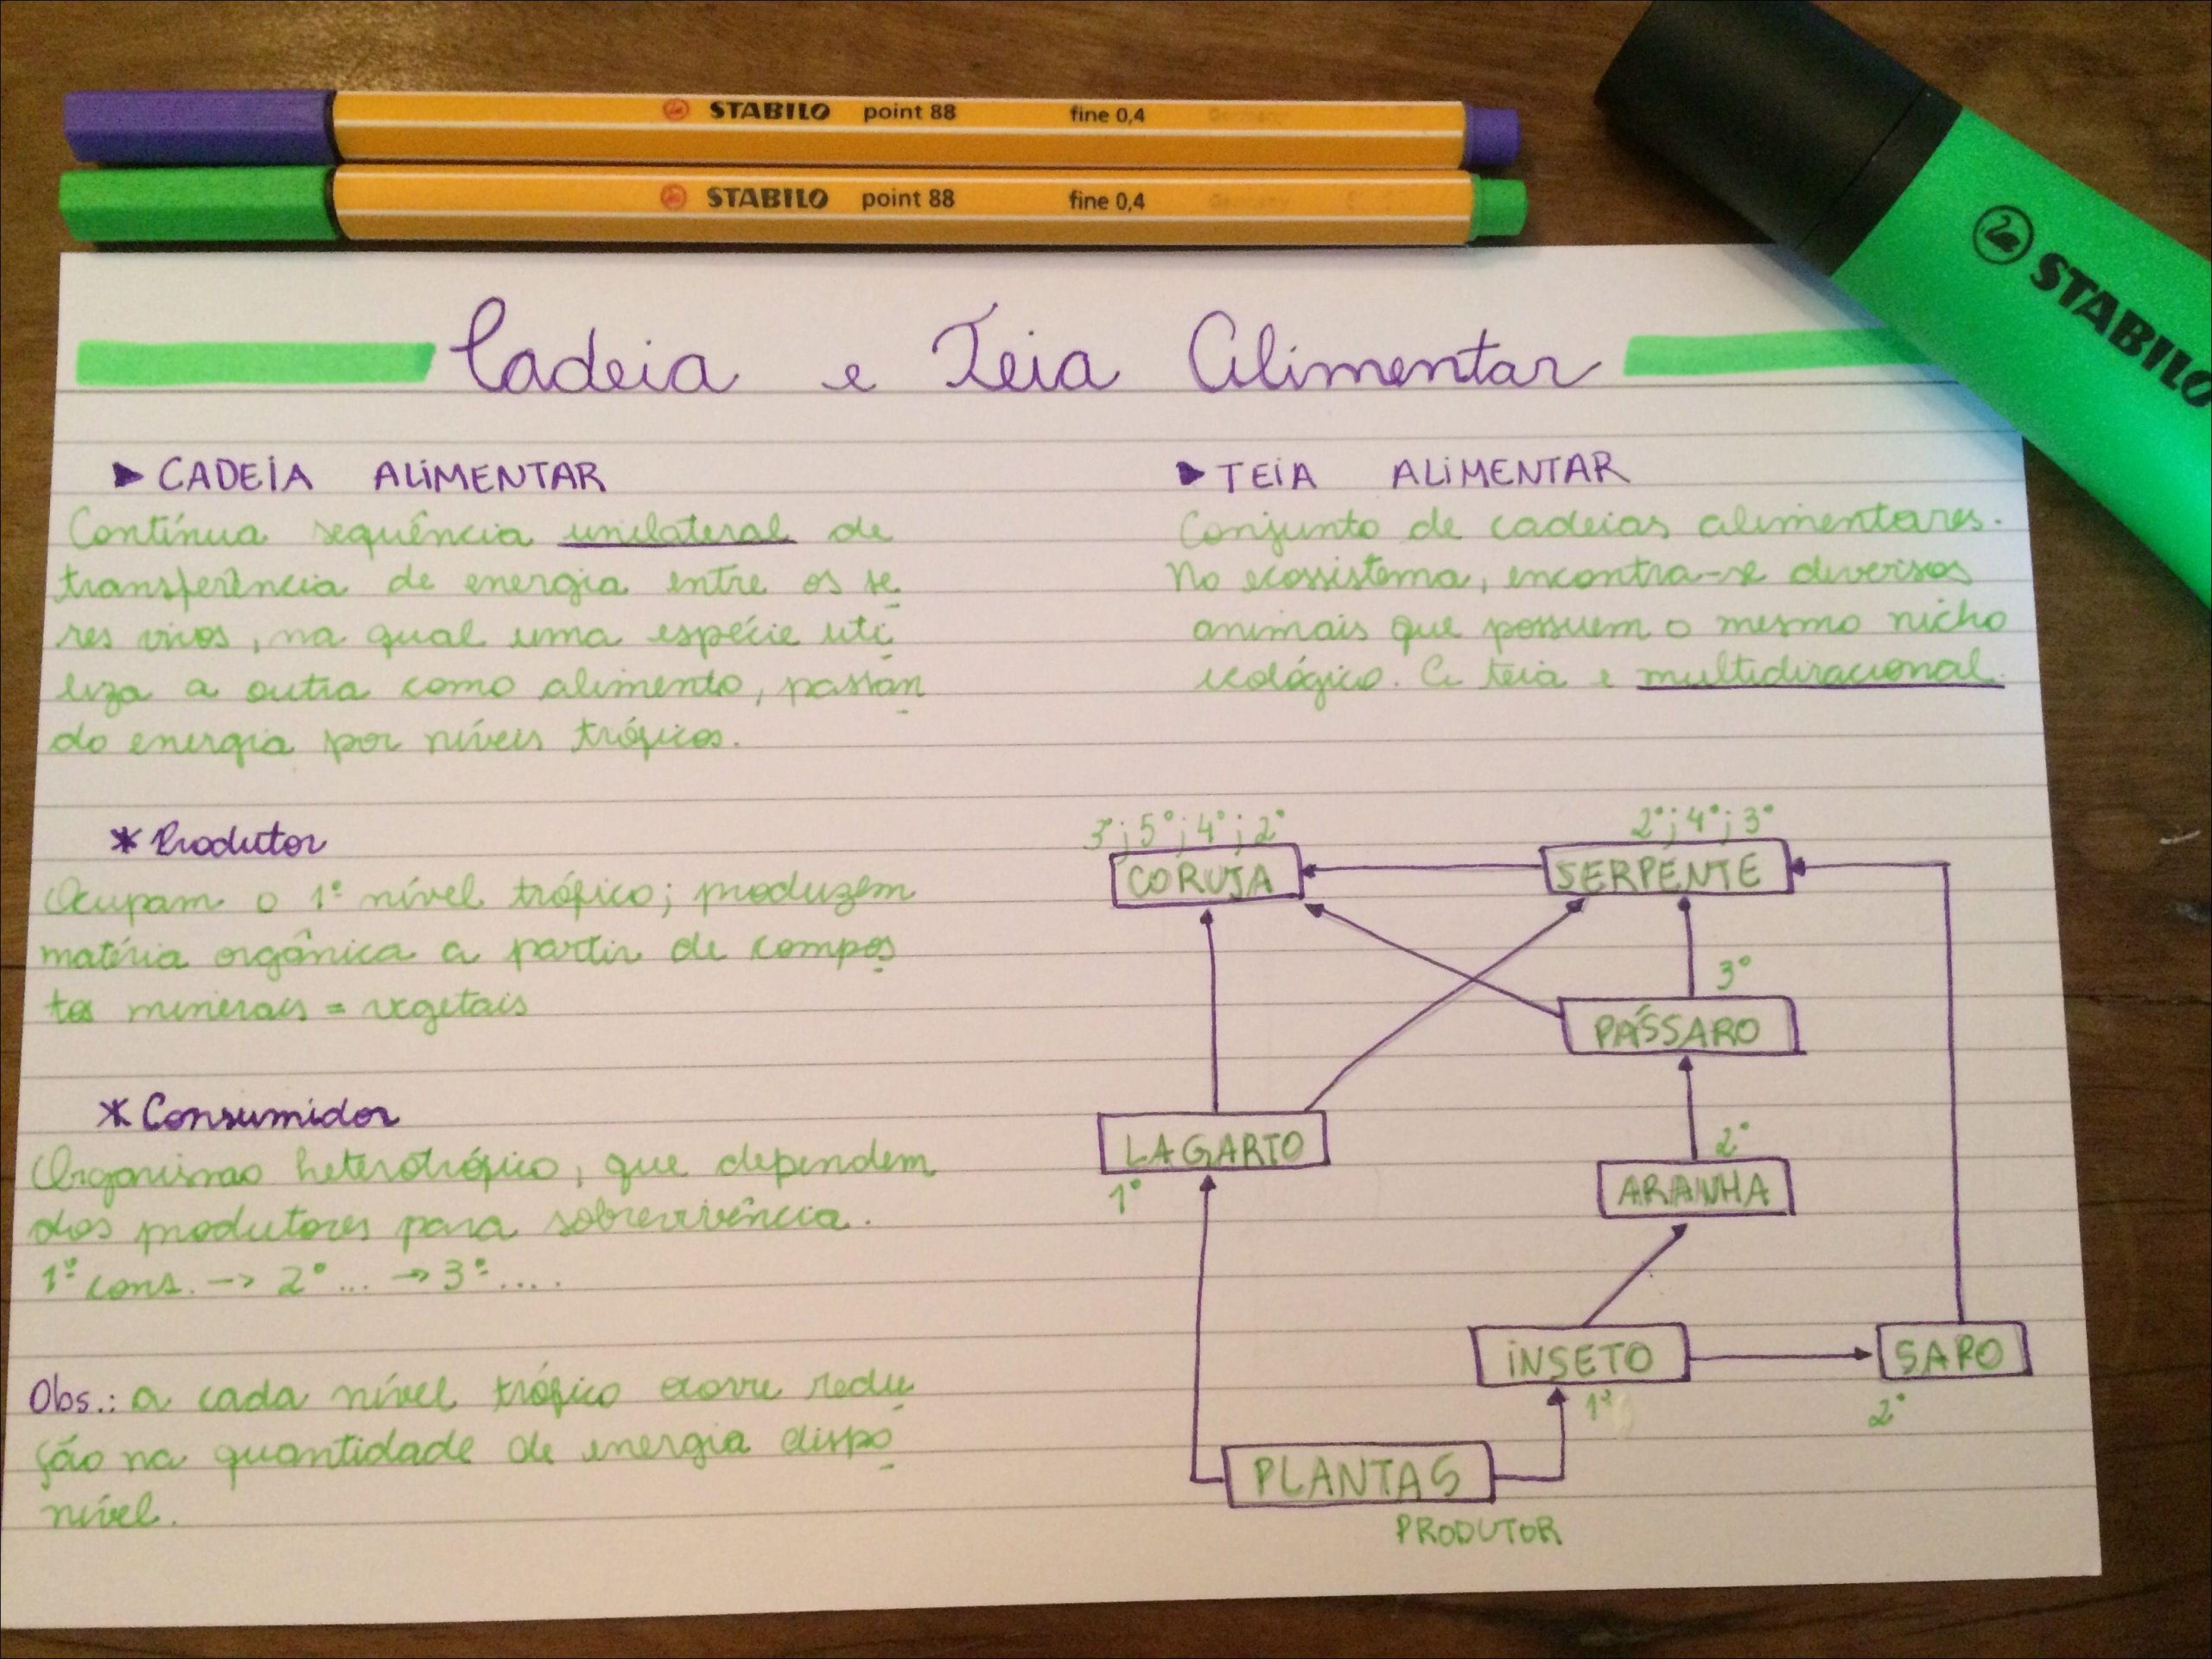 STABILO point 88 fine 0,4
STABILO point 88 fine 0,4
STABILO
Cadeia e Teia Alimentar
CADEIA ALIMENTAR
Contínua sequência unilateral de
transferência de energia entre os se
res vivos, na qual uma espécie uti
liza a outra como alimento, passan
do energia por níveis tróficos.
* Produtor
Ocupam o 1º nível trófico; produzem
matéria orgânica a partir de compos
tos minerais = vegetais
* Consumidor
Organismo heterotrófico, que dependem
dos produtores para sobrevivência.
1º cons. -> 2º ... -> 3º ....
Obs.: a cada nível trófico ocorre redu
ção na quantidade de energia dispo
nível.
TEIA ALIMENTAR
Conjunto de cadeias alimentares.
No ecossistema, encontra-se diversos
animais que possuem o mesmo nicho
ecológico. A teia é multidirecional.
3º; 5º; 4º; 2º
CORUJA
2º; 4º; 3º
SERPENTE
3º
PÁSSARO
LAGARTO
1º
2º
ARANHA
INSETO
1º
SAPO
2º
PLANTAS
PRODUTOR